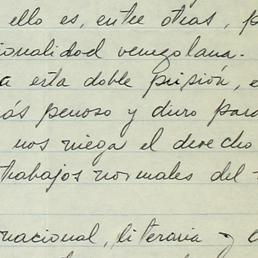 ello es, entre otras, p
ionalidad venezolana.
a esta doble prisión, e
ás penoso y duro para
nos niega el derecho
trabajos normales del
nacional, literaria y c